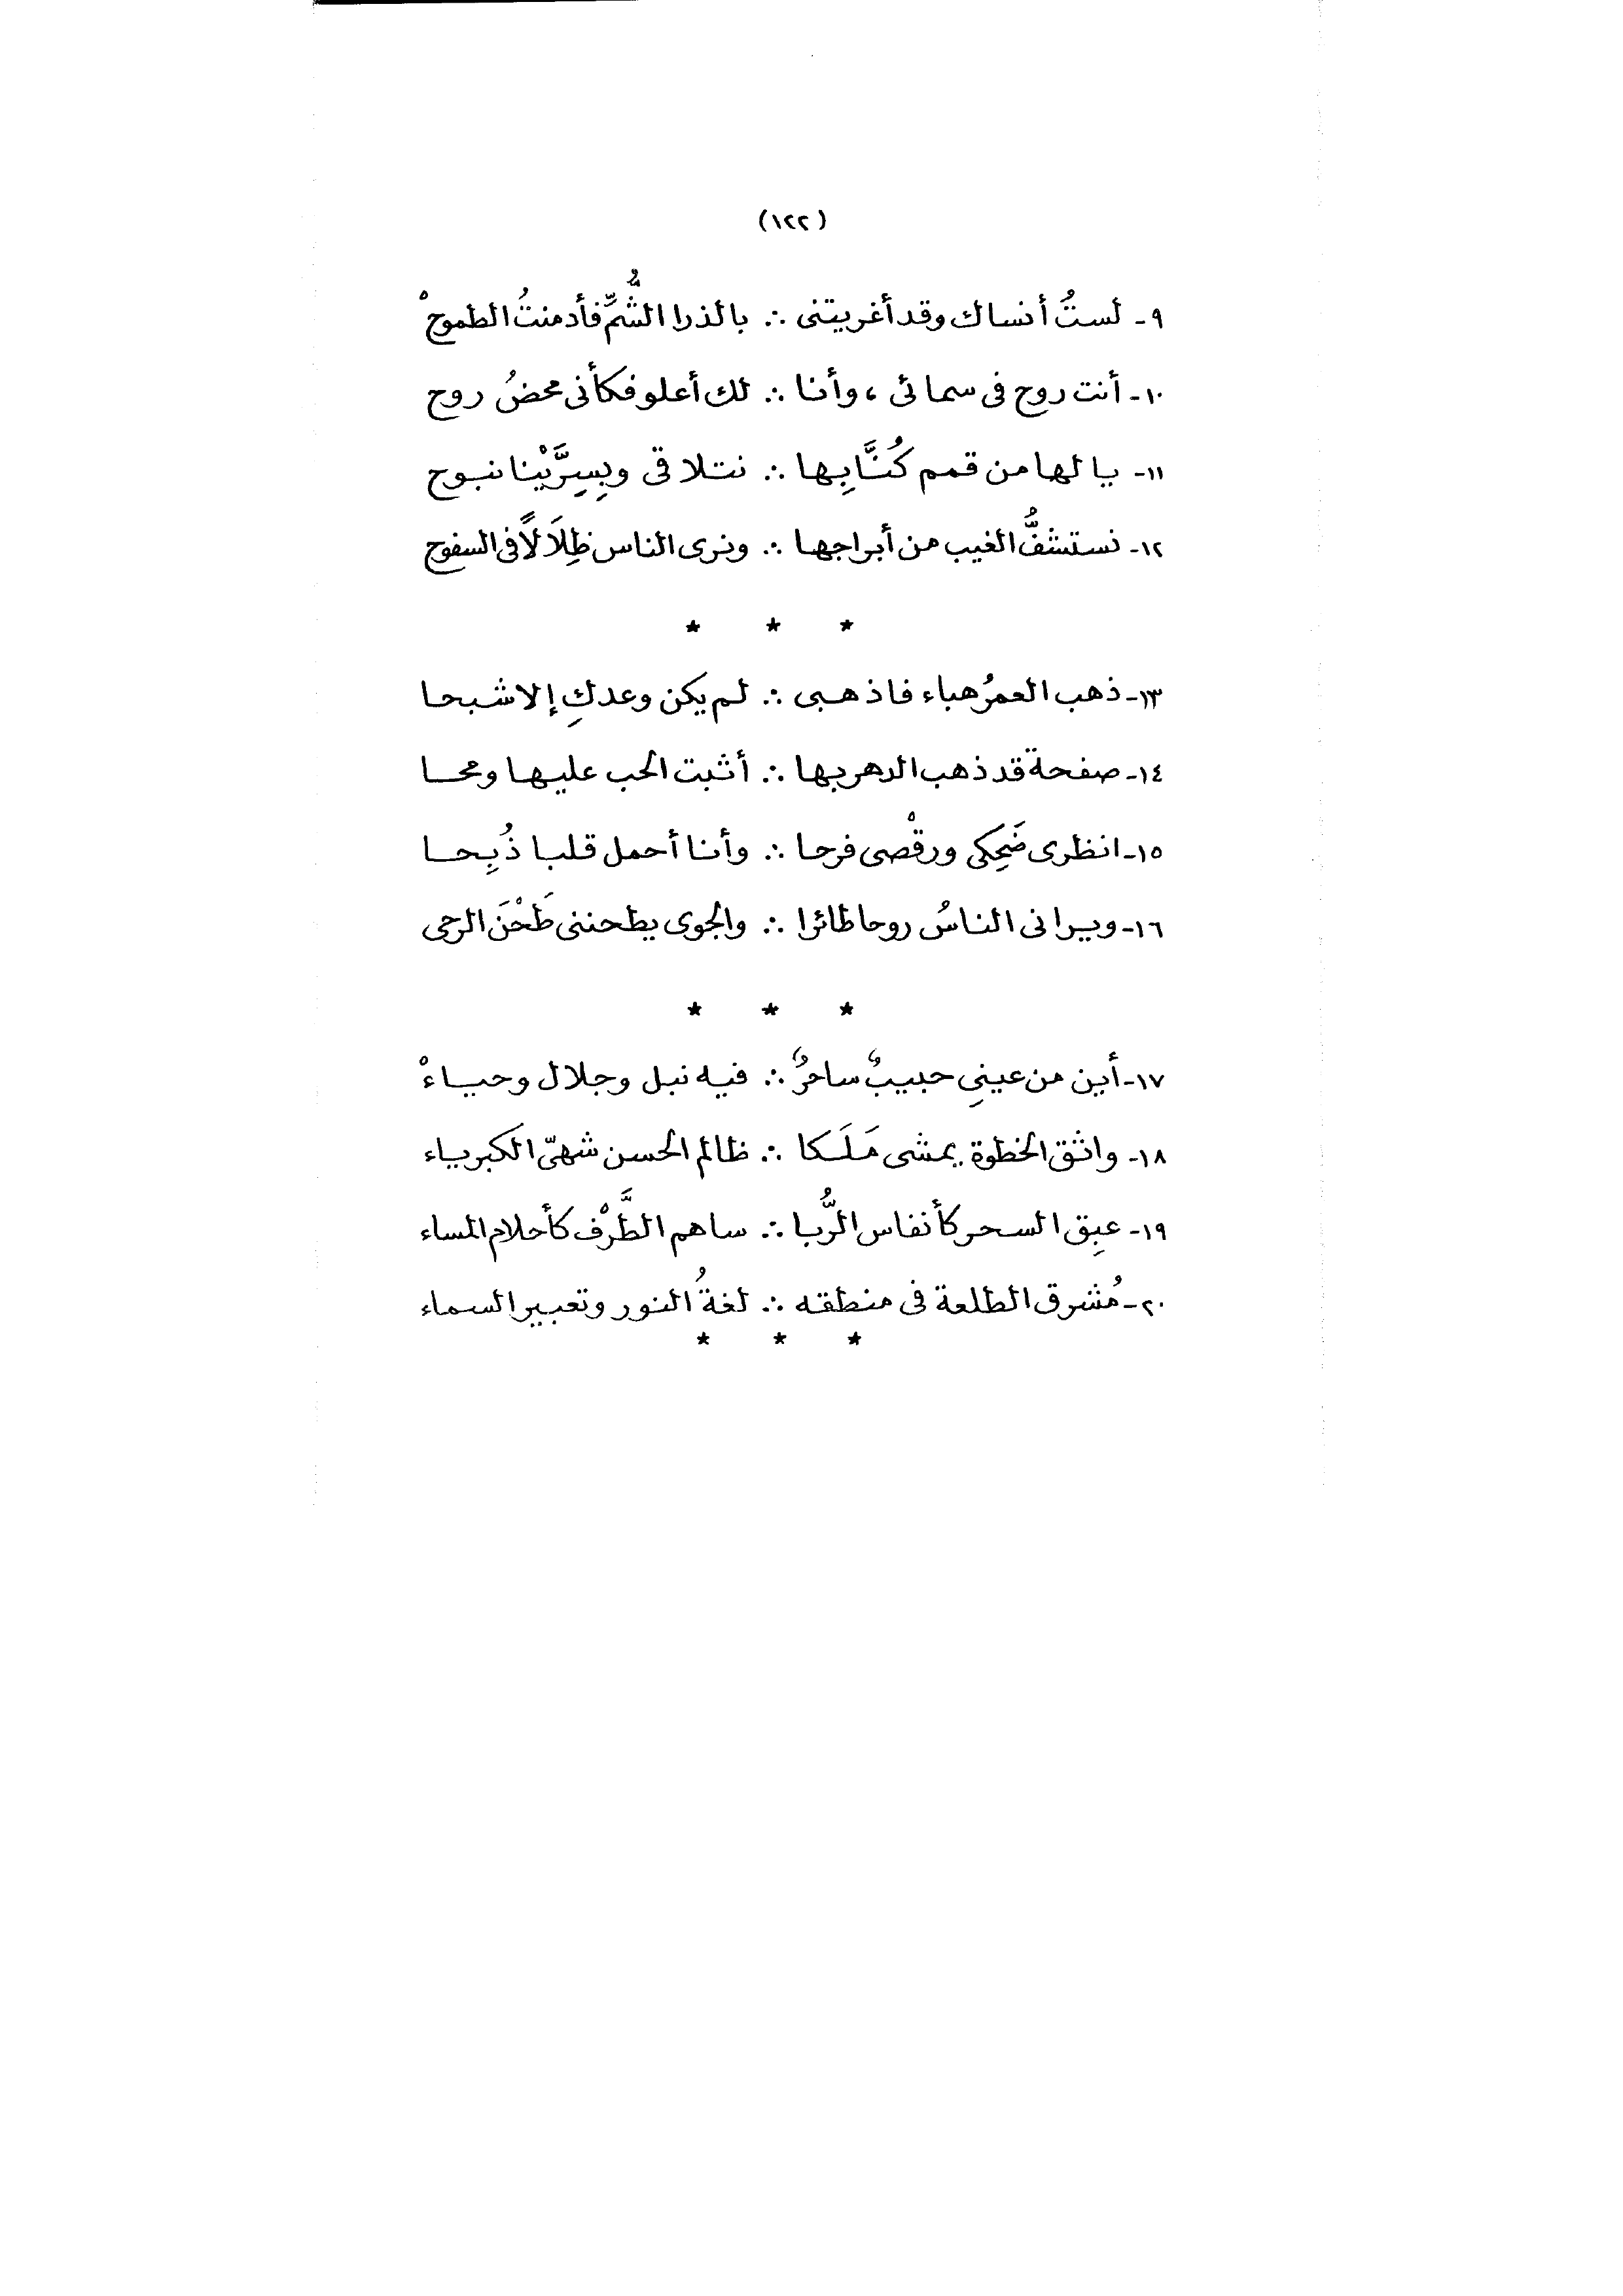 (١٢٢)
٩- لستُ أنساك وقد أغريتنى ∴ بالذرا الشُّمِّ فأدمنتُ الطموحْ
١٠- أنت روح فى سمائى ، وأنا ∴ لك أعلو فكأنى محضُ روح
١١- يا لها من قمم كُنَّا بِها ∴ نتلاقى وبِسِرَّيْنا نبوح
١٢- نستشفُّ الغيب من أبراجها ∴ ونرى الناس ظِلَالًا فى السفوح
* * *
١٣- ذهب العمرُ هباء فاذهبى ∴ لم يكن وعدكِ إلا شبحا
١٤- صفحة قد ذهب الدهر بها ∴ أثبت الحب عليها ومحا
١٥- انظرى ضَحِكى ورقْصى فرحا ∴ وأنا أحمل قلبا ذُبِحا
١٦- ويرانى الناسُ روحا طائرا ∴ والجوى يطحننى طَحْنَ الرحى
* * *
١٧- أين من عينِى حبيبٌ ساحرٌ ∴ فيه نبل وجلال وحياءْ
١٨- واثق الخطوة يمشى مَلَكا ∴ ظالم الحسن شهىّ الكبرياء
١٩- عبِق السحر كأنفاس الرُّبا ∴ ساهم الطَّرْف كأحلام المساء
٢٠- مُشرق الطلعة فى منطقه ∴ لغةُ النور وتعبير السماء
* * *